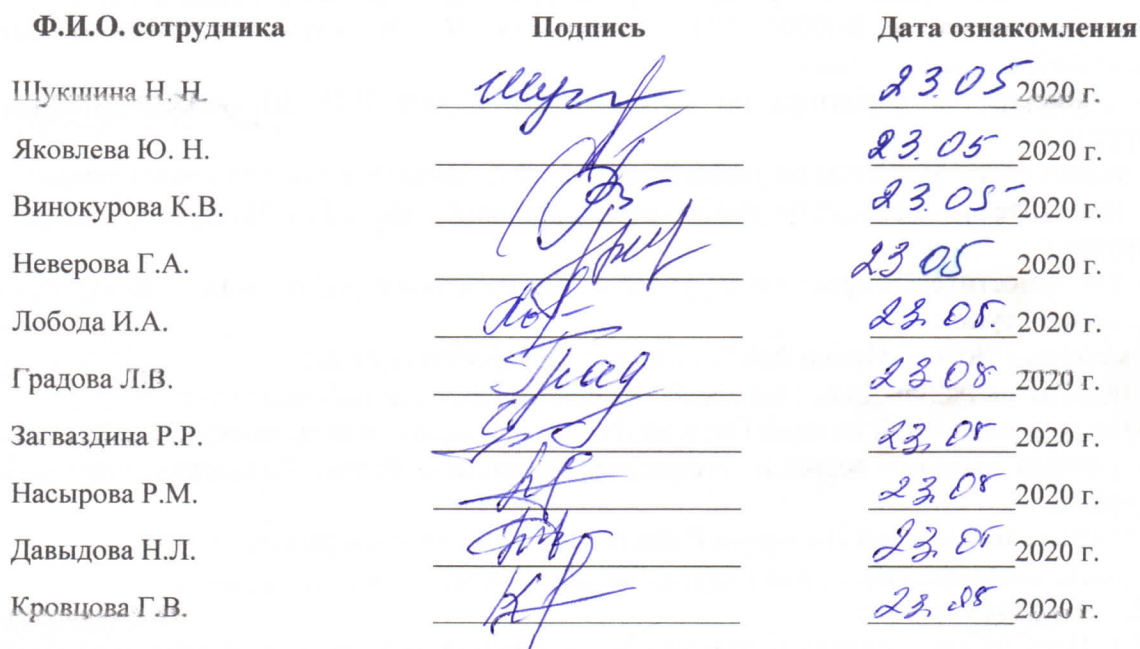 Ф.И.О. сотрудника Подпись Дата ознакомления
Шукшина Н. Н. 23.05 2020 г.
Яковлева Ю. Н. 23.05 2020 г.
Винокурова К.В. 23.05 2020 г.
Неверова Г.А. 23 05 2020 г.
Лобода И.А. 23.05. 2020 г.
Градова Л.В. Град 23 05 2020 г.
Загваздина Р.Р. 23.05 2020 г.
Насырова Р.М. 23.05 2020 г.
Давыдова Н.Л. 23.05 2020 г.
Кровцова Г.В. 23.05 2020 г.